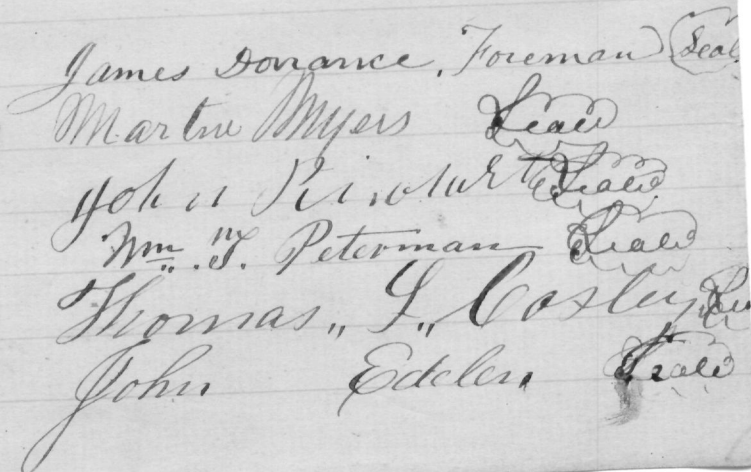 James Dorrance, Foreman Seal
Martin Myers Seal
John Rinehart Seal
Wm. T. Peterman Seal
Thomas,, L,, Coxley Seal
John Edelen. Seal